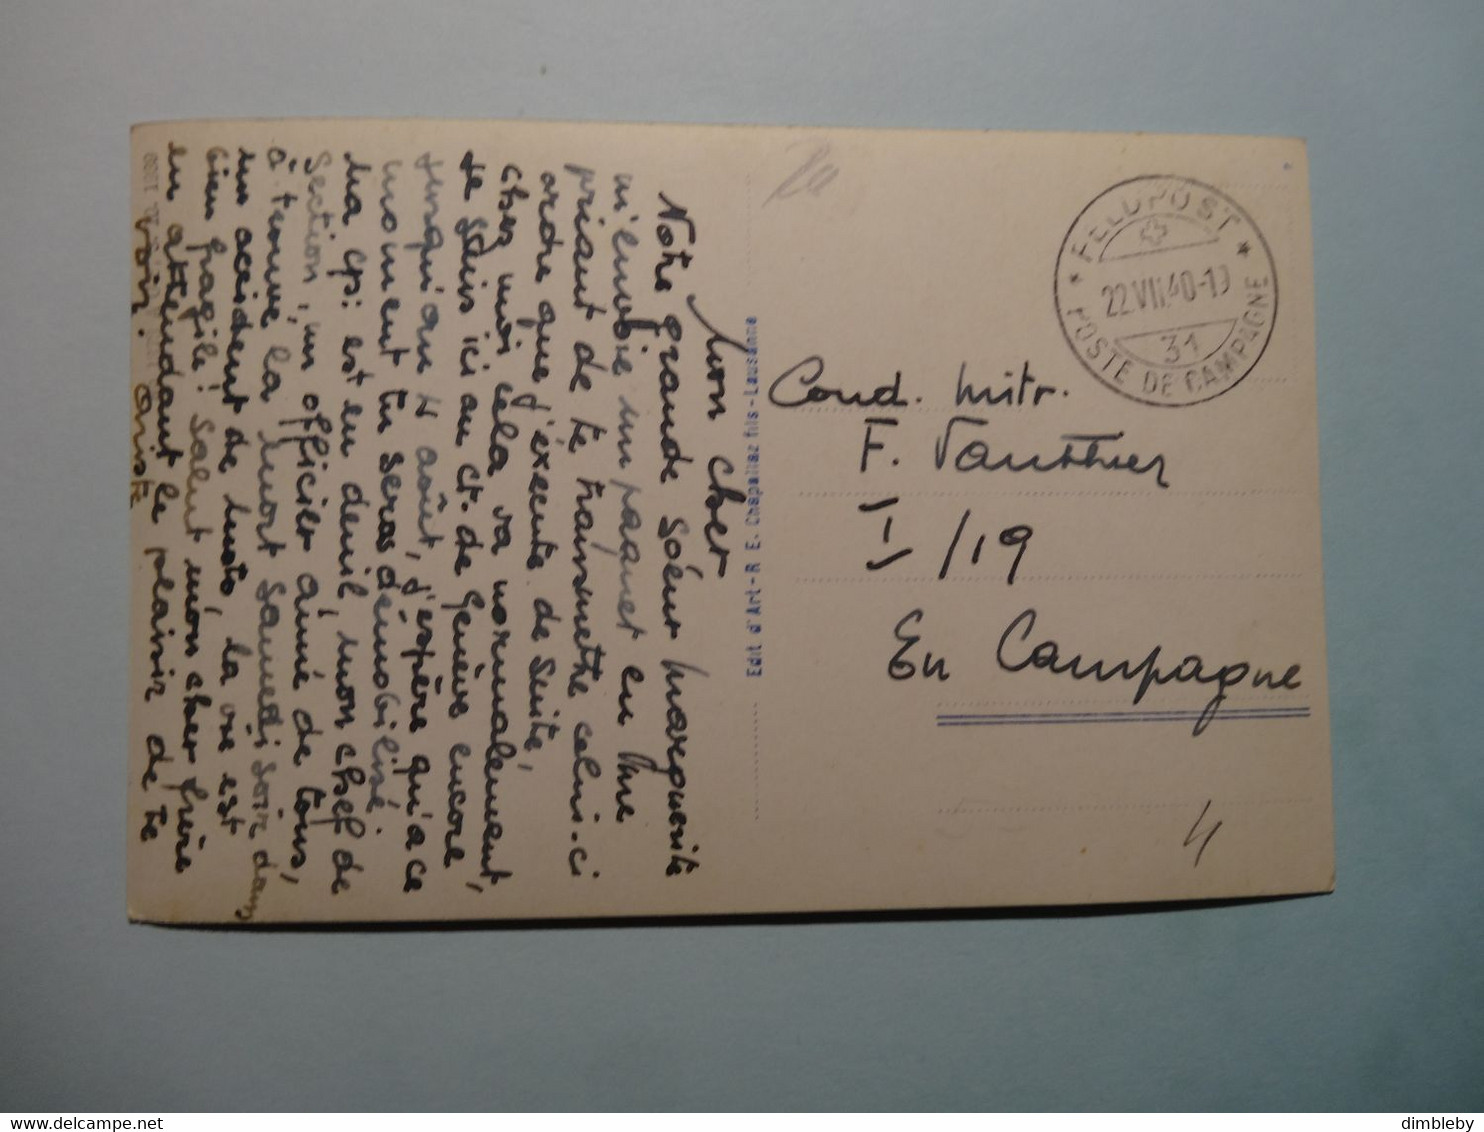 Mon cher
Notre grande Soeur Marguerite
m'envoie un paquet en me
priant de te transmettre celui-ci
ordre que j'exécute de suite,
chez moi cela va normalement,
je suis ici au Ct. de Genève encore
jusqu'au 4 août, j'espère qu'à ce
moment tu seras démobilisé.
Ma cp: est en deuil, mon chef de
Section, un officier aimé de tous,
à trouvé la mort Samedi soir dans
un accident de moto, la vie est
bien fragile! Salut mon cher frère
en attendant le plaisir de te
voir.
Edit d'Art-R E. Chapallaz fils-Lausanne
FELDPOST
22.VII.40-19
31
POSTE DE CAMPAGNE
Cond. Mitr.
F. Vauthier
I/19
En Campagne
4
dimbleby